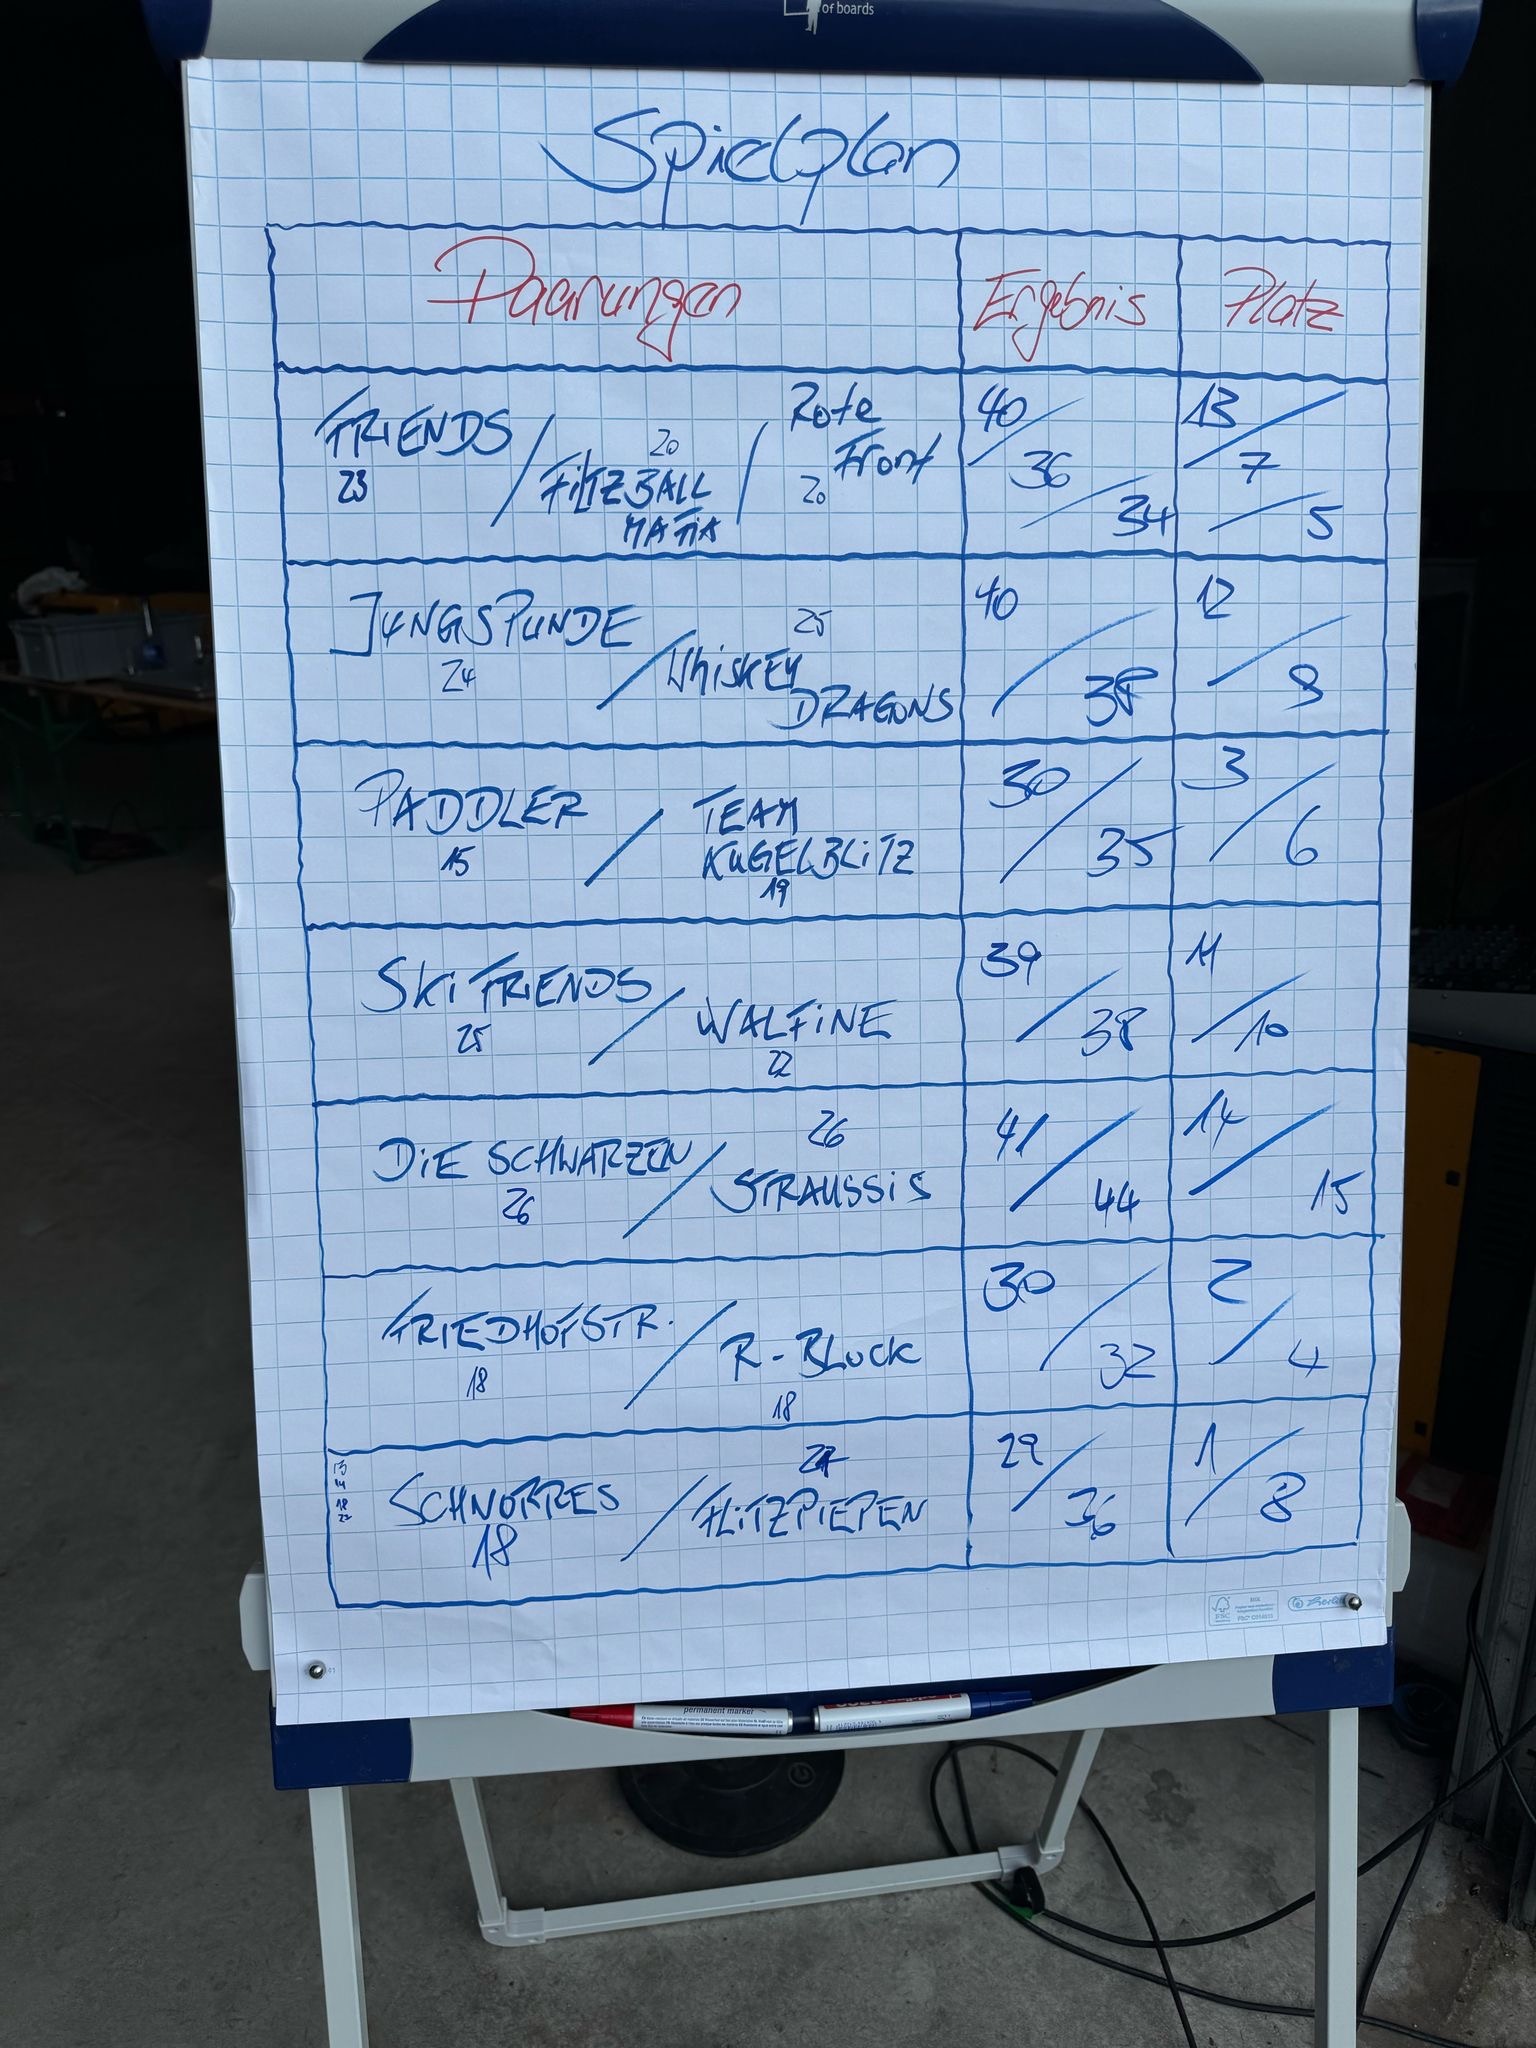 of boards
Spielplan
Paarungen Ergebnis Platz
FRIENDS / FILTZBALL MAFIA / Rote Front 40 / 36 / 34 13 / 7 / 5
23 20 20
JUNGSPUNDE / WHISKEY DRAGONS 40 / 38 12 / 9
24 25
PADDLER / TEAM KUGELBLITZ 30 / 35 3 / 6
15 19
SKIFRIENDS / WALFINE 39 / 38 11 / 10
25 22
DIE SCHWARZEN / STRAUSSIS 41 / 44 14 / 15
26 26
FRIEDHOFSTR. / R-BLOCK 30 / 32 2 / 4
18 18
SCHNORRES / FLITZPIEPEN 29 / 36 1 / 8
18
FSC
permanent marker